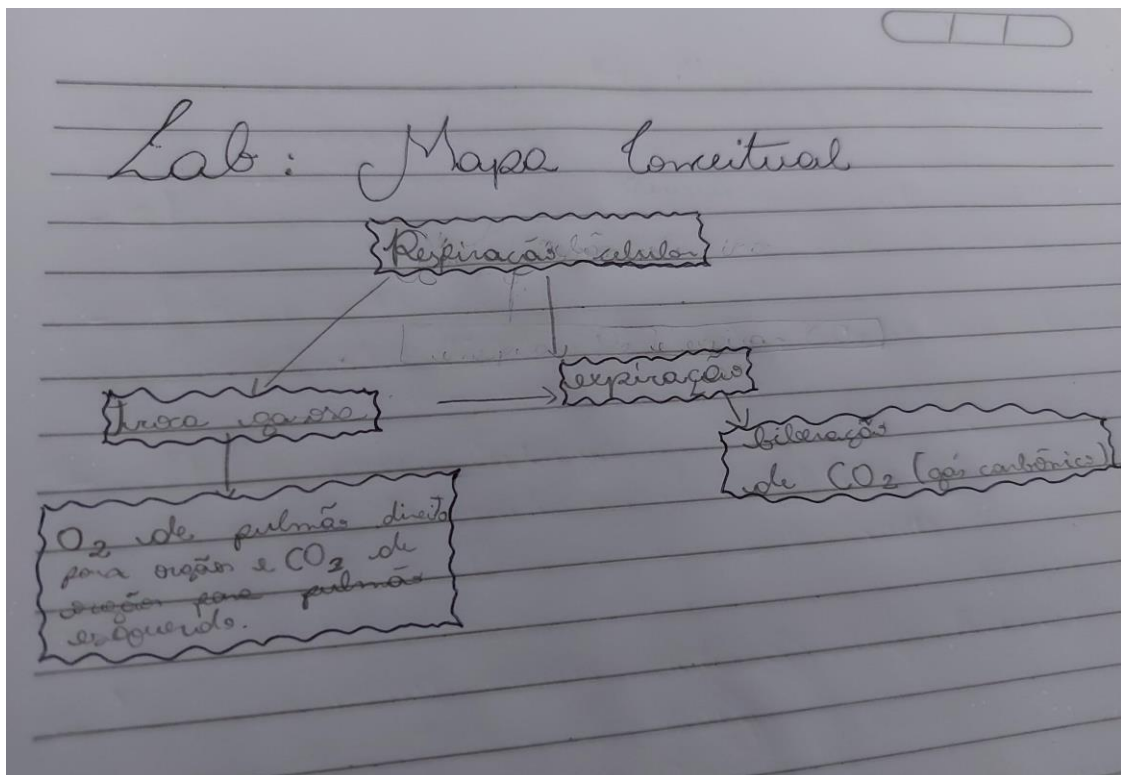 Lab: Mapa Conceitual
Respiração celular
troca gasosa
expiração
liberação
de CO₂ (gás carbônico)
O₂ de pulmão direito
para orgãos e CO₂ de
orgãos para pulmão
esquerdo.